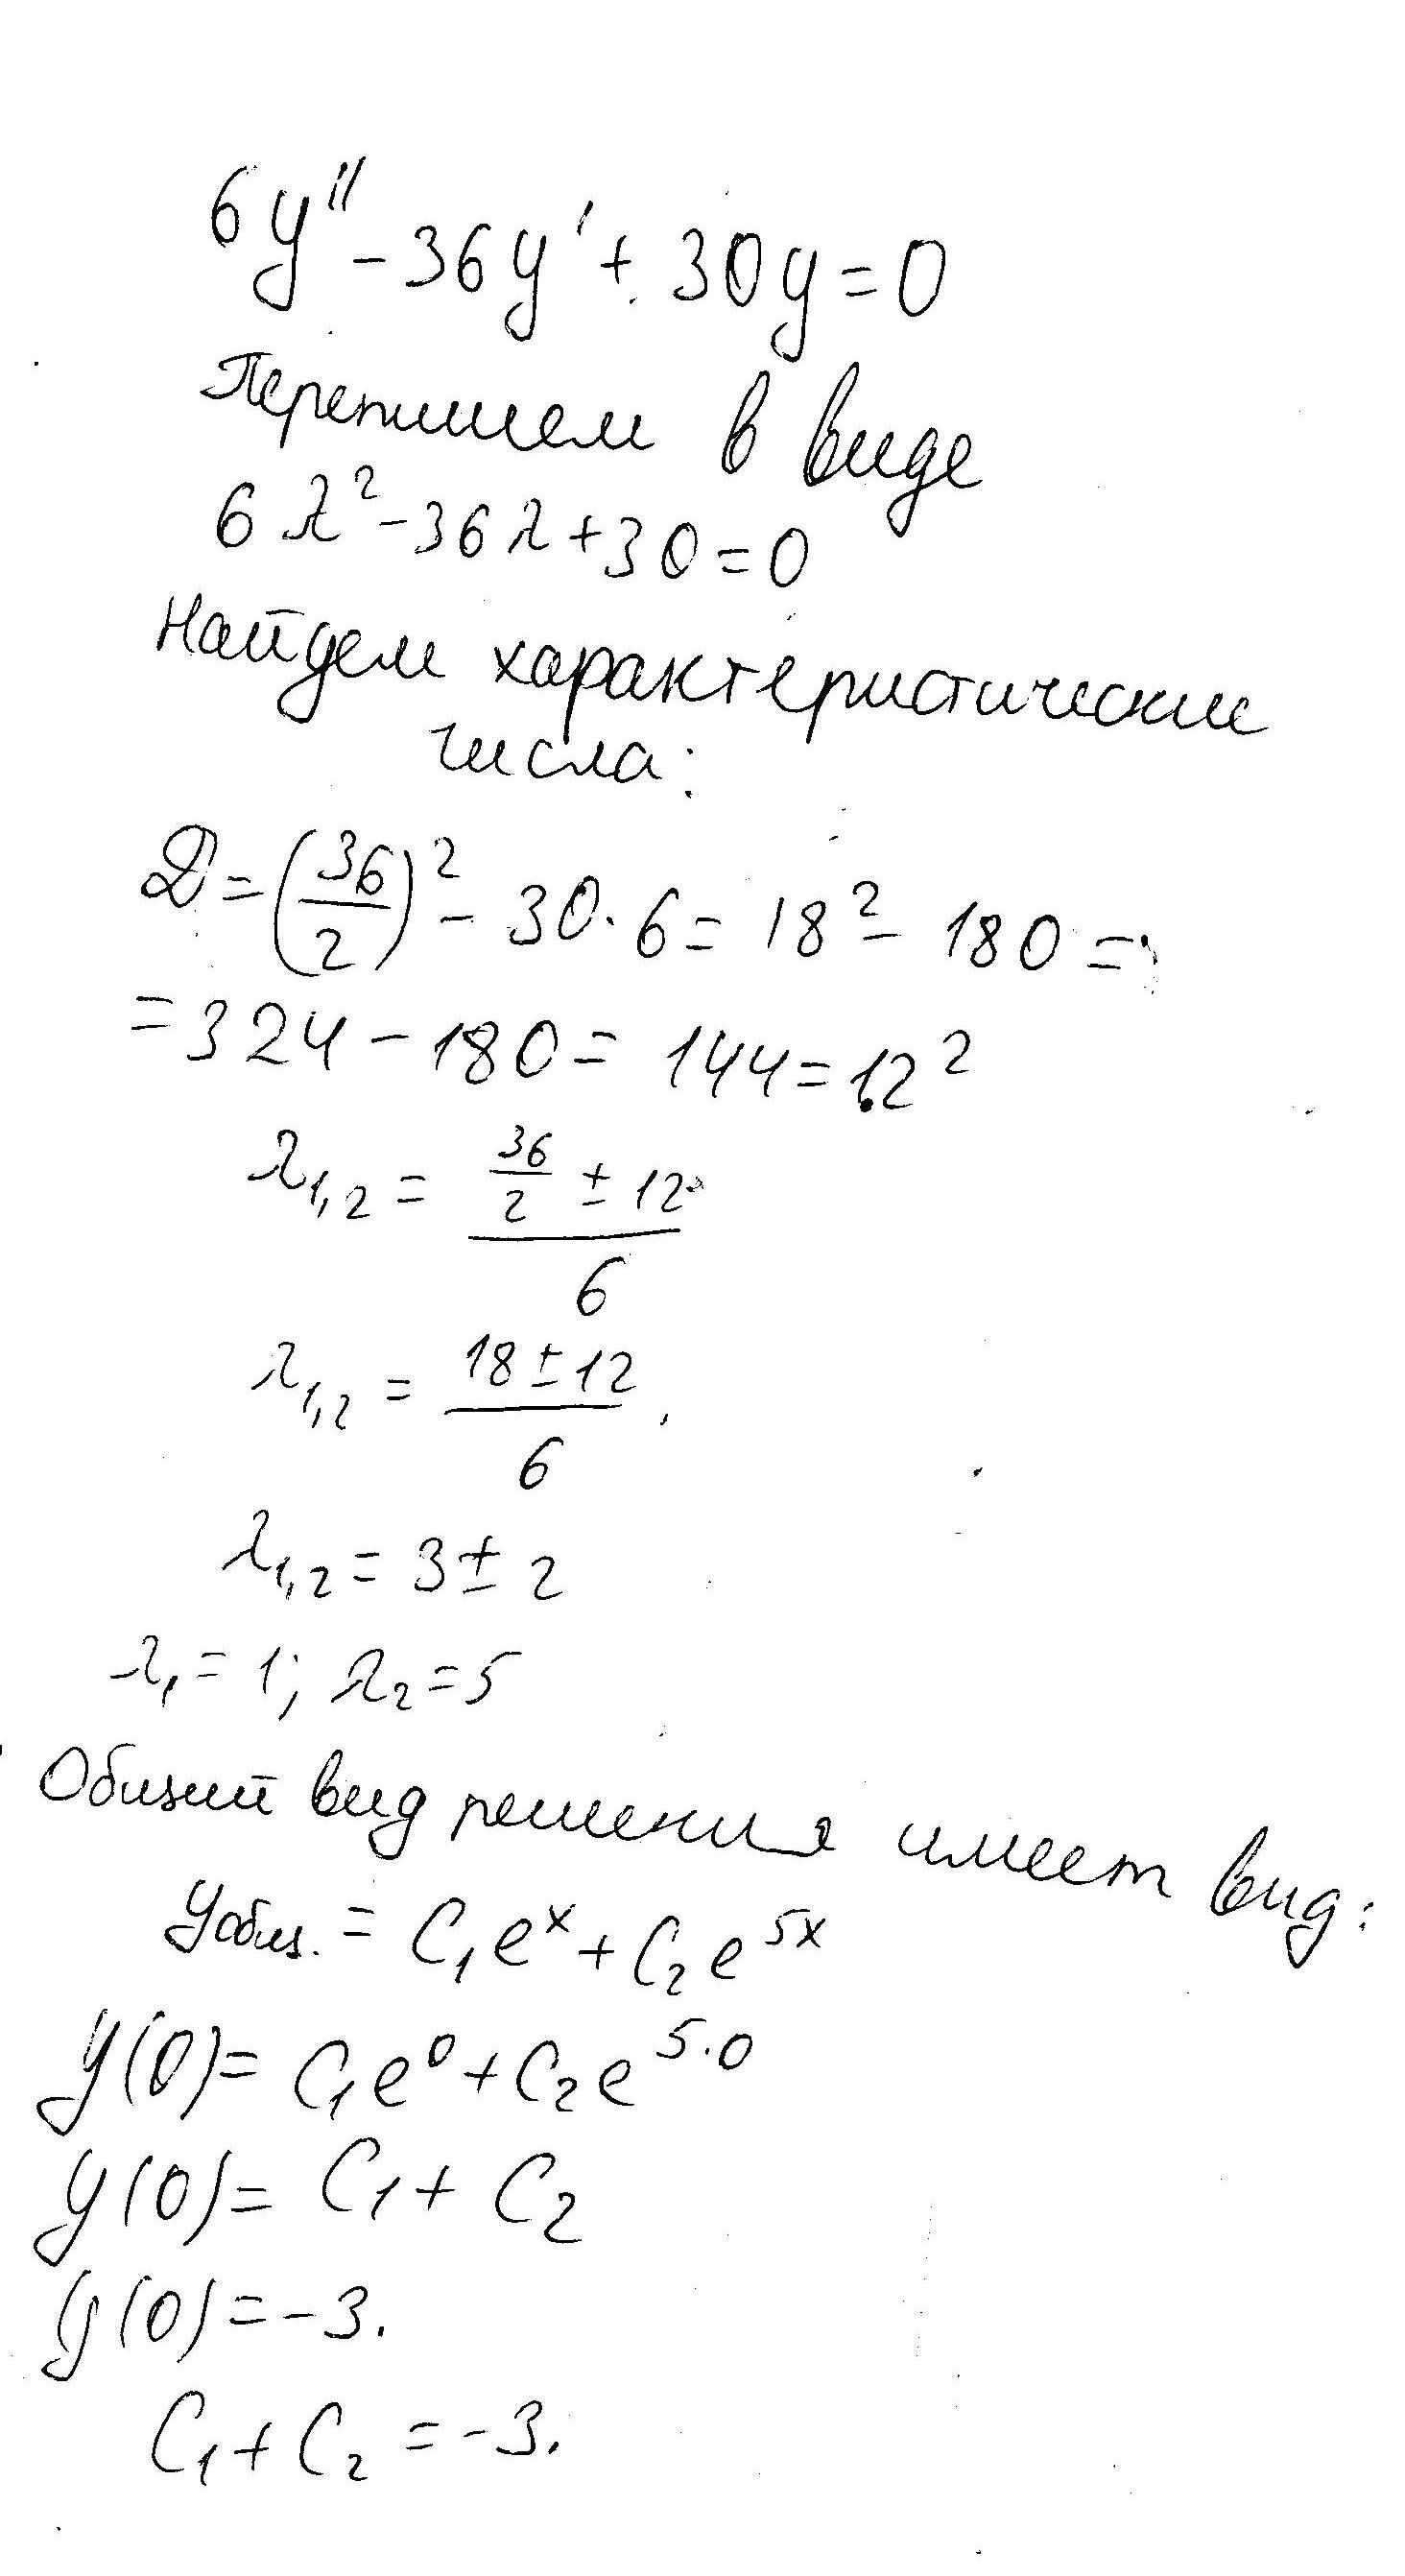 6y'' - 36y' + 30y = 0
Перепишем в виде
6λ² - 36λ + 30 = 0
Найдем характеристические
числа:
D = (36/2)² - 30·6 = 18² - 180 =
= 324 - 180 = 144 = 12²
λ₁,₂ = (36/2 ± 12)/6
λ₁,₂ = (18 ± 12)/6
λ₁,₂ = 3 ± 2
λ₁ = 1; λ₂ = 5
Общий вид решения имеет вид:
yобщ. = C₁eˣ + C₂e⁵ˣ
y(0) = C₁e⁰ + C₂e⁵·⁰
y(0) = C₁ + C₂
y(0) = -3.
C₁ + C₂ = -3.